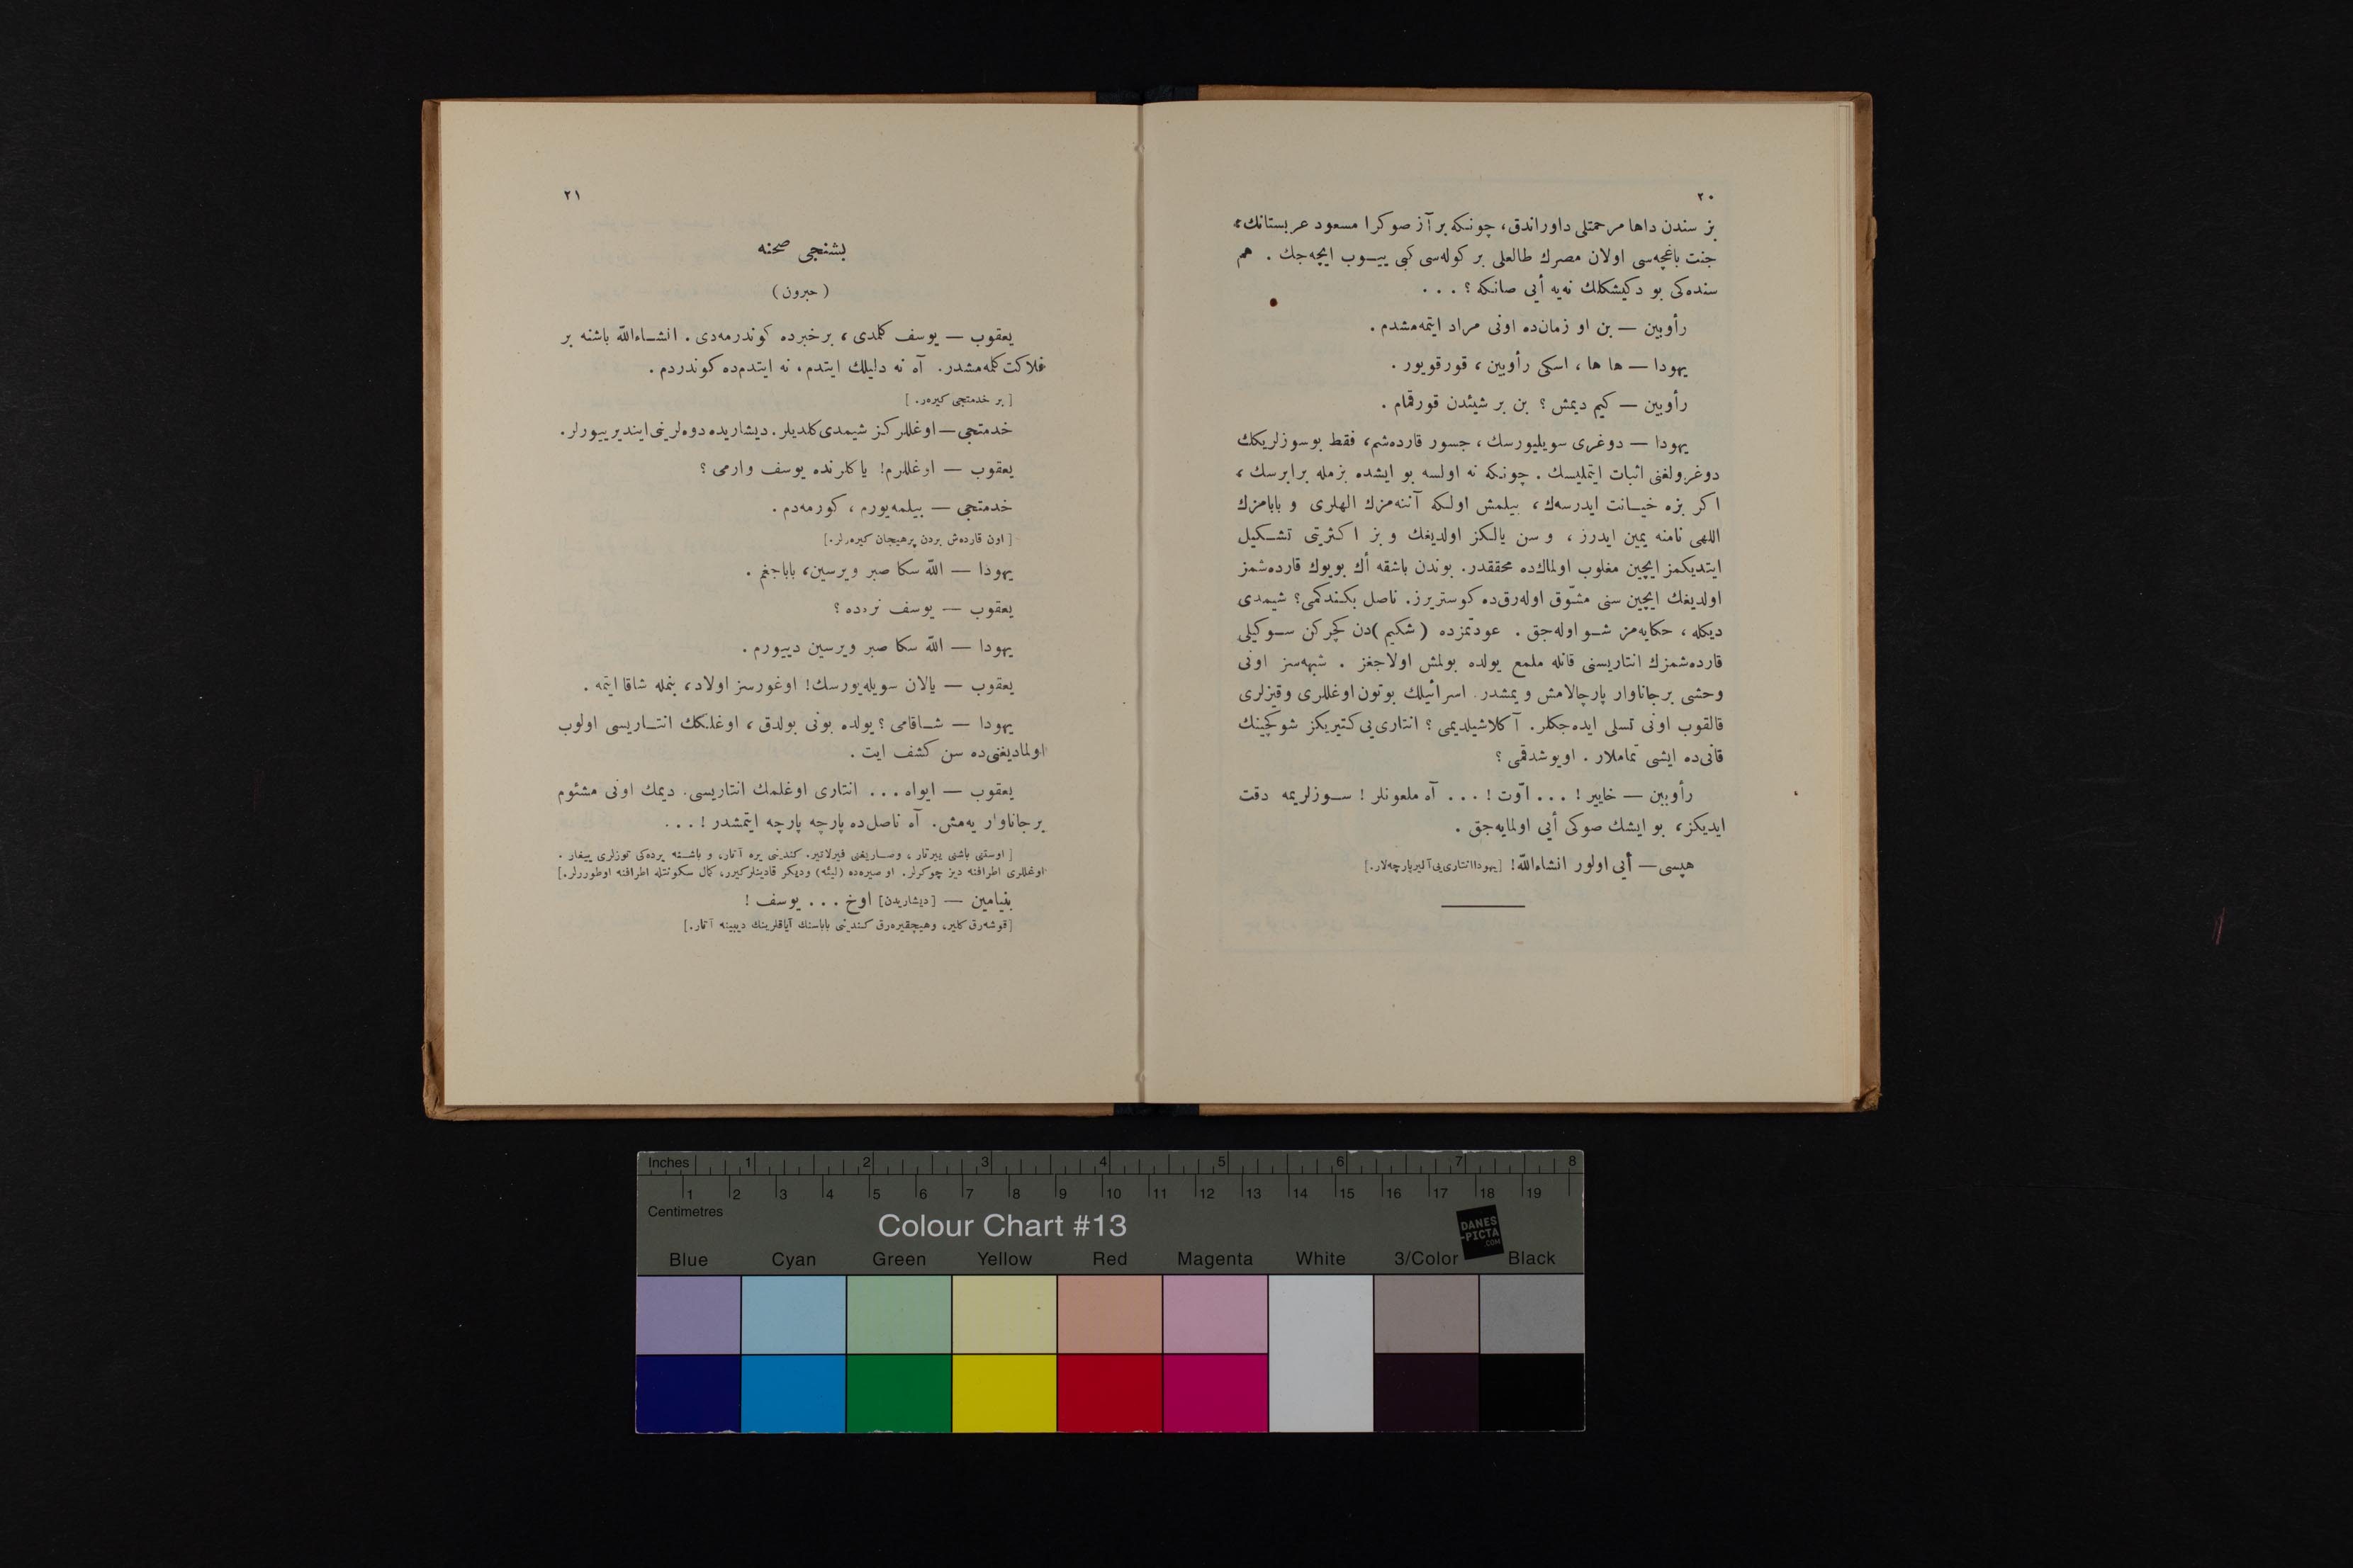 ٢٠
بز سندن داها مرحمتلی داوراندق، چونکه بر آز صوکرا مسعود عربستانك،
جنت باغچه‌سی اولان مصرك طالعلی بر کوله‌سی کبی ییوب ایچه‌جك . هم
سنده‌کی بو دکیشکلك نه‌یه أیی صانکه ؟ . . .
رأوبین — بن او زمان‌ده اونی مراد ایتمه‌مشدم .
یهودا — ها ها ، اسکی رأوبین ، قورقویور .
رأوبین — کیم دیمش ؟ بن بر شیئدن قورقمام .
یهودا — دوغری سویلیورسك ، جسور قارده‌شم، فقط بو سوزلریکك
دوغرولغنی اثبات ایتملیسك . چونکه نه اولسه بو ایشده بزمله برابرسك ،
اکر بزه خیانت ایدرسه‌ك ، بیلمش اول‌که آننه‌مزك الهلری و بابامزك
اللهی نامنه یمین ایدرز ، و سن یالکز اولدیغك و بز اکثریتی تشکیل
ایتدیکمز ایچین مغلوب اولمالك‌ده محققدر. بوندن باشقه أك بویوك قارده‌شمز
اولدیغك ایچین سنی مشوّق اوله‌رق‌ده کوستریرز. ناصل بکندکمی؟ شیمدی
دیکله ، حکایه‌مز شو اوله‌جق . عودتمزده (شکیم)دن کچرکن سوکیلی
قارده‌شمزك انتاریسنی قانله ملمع یولده بولمش اولاجغز . شبهه‌سز اونی
وحشی بر جاناوار پارچالامش و یمشدر. اسرائیلك بوتون اوغللری و قیزلری
قالقوب اونی تسلی ایده‌جکلر. آکلاشیلدیمی؟ انتاری‌یی کتیریکز شو کچینك
قانی‌ده ایشی تماملار . اویوشدقمی ؟
رأوبین — خاییر ! . . . اوّت ! . . . آه ملعونلر ! سوزلریمه دقت
ایدیکز، بو ایشك صوکی أیی اولمایه‌جق .
هپسی — أیی اولور انشاءالله! [یهودا انتاری‌یی آلیر پارچه‌لار.]
٢١
بشنجی صحنه
( حبرون )
یعقوب — یوسف کلمدی ، بر خبرده کوندرمه‌دی . انشاءالله باشنه بر
فلاکت کلمه‌مشدر. آه نه دلیلك ایتدم ، نه ایتدم‌ده کوندردم .
[ بر خدمتجی کیرەر. ]
خدمتجی — اوغللرکز شیمدی کلدیلر. دیشاریده دوه‌لرینی ایندیرییورلر.
یعقوب — اوغللرم! یا کلرنده یوسف وارمی ؟
خدمتجی — بیلمه‌یورم ، کورمه‌دم .
[ اون قارده‌ش بردن پرهیجان کیرەرلر.]
یهودا — الله سکا صبر ویرسین، باباجغم .
یعقوب — یوسف نره‌ده ؟
یهودا — الله سکا صبر ویرسین دییورم .
یعقوب — یالان سویله‌یورسك! اوغورسز اولاد، بنمله شاقا ایتمه .
یهودا — شاقامی ؟ یولده بونی بولدق ، اوغلکك انتاریسی اولوب
اولمادیغنی‌ده سن کشف ایت .
یعقوب — ایواه . . . انتاری اوغلمك انتاریسی. دیمك اونی مشئوم
بر جاناوار یه‌مش. آه ناصل‌ده پارچه پارچه ایتمشدر ! . . .
[ اوستنی باشنی ییرتار ، وصاریغنی فیرلاتیر. کندینی یره آتار، و باشنه یرده‌کی توزلری ییغار .
اوغللری اطرافنه دیز چوکرلر. او صیره‌ده (لیئه) ودیکر قادینلر کیرر، کمال سکونتله اطرافنه اوطوررلر.]
بنیامین — [دیشاریدن] اوخ . . . یوسف !
[قوشه‌رق کلیر، وهیچقیره‌رق کندینی باباسنك آیاقلرینك دیبینه آتار.]
Inches 1 2 3 4 5 6 7 8
1 2 3 4 5 6 7 8 9 10 11 12 13 14 15 16 17 18 19
Centimetres
Colour Chart #13
DANES
-PICTA
.COM
Blue Cyan Green Yellow Red Magenta White 3/Color Black